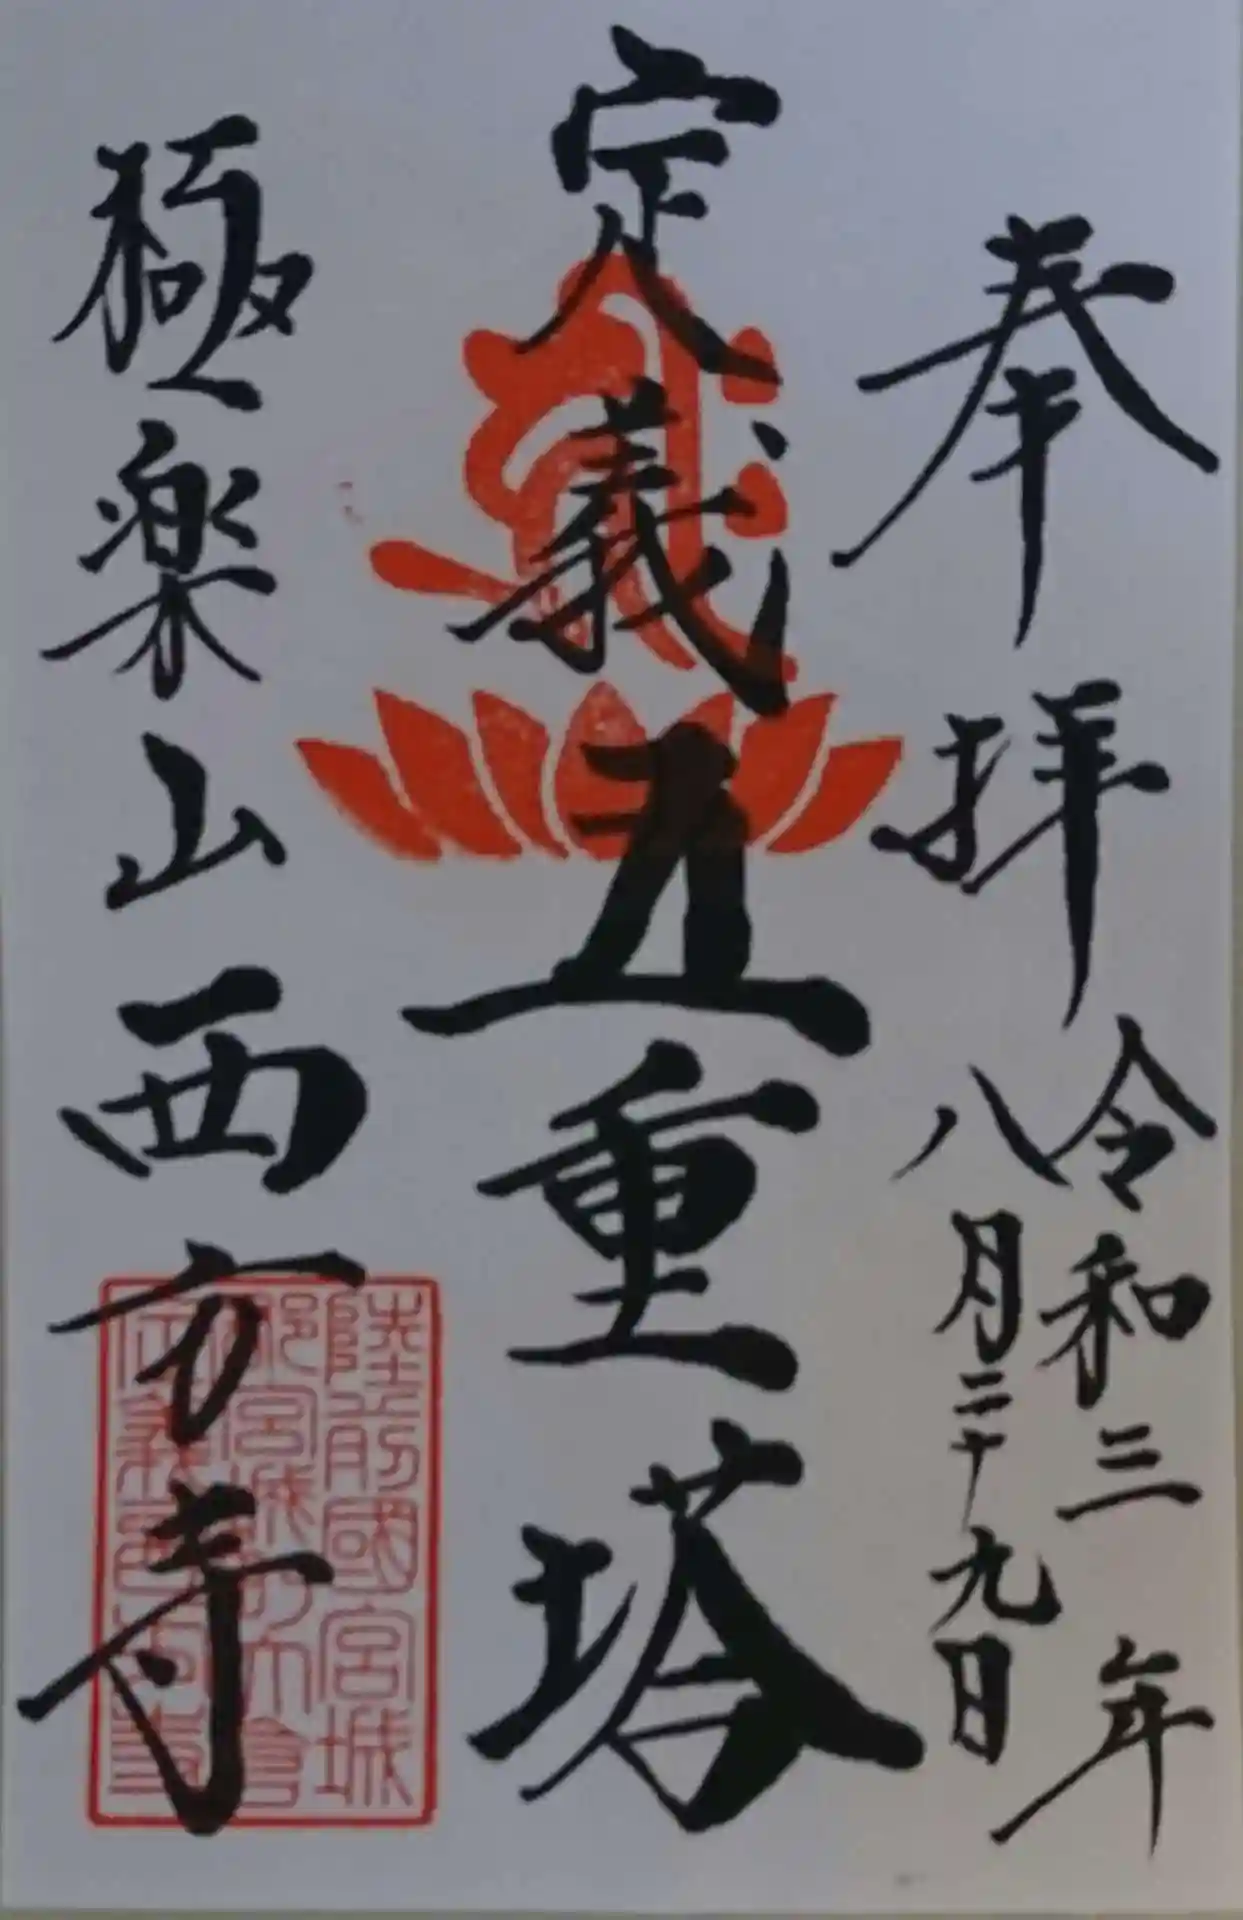 奉拝
令和三年
八月二十九日
定義五重塔
極楽山西方寺
陸前國宮城
郡宮城町大倉
定義西方寺